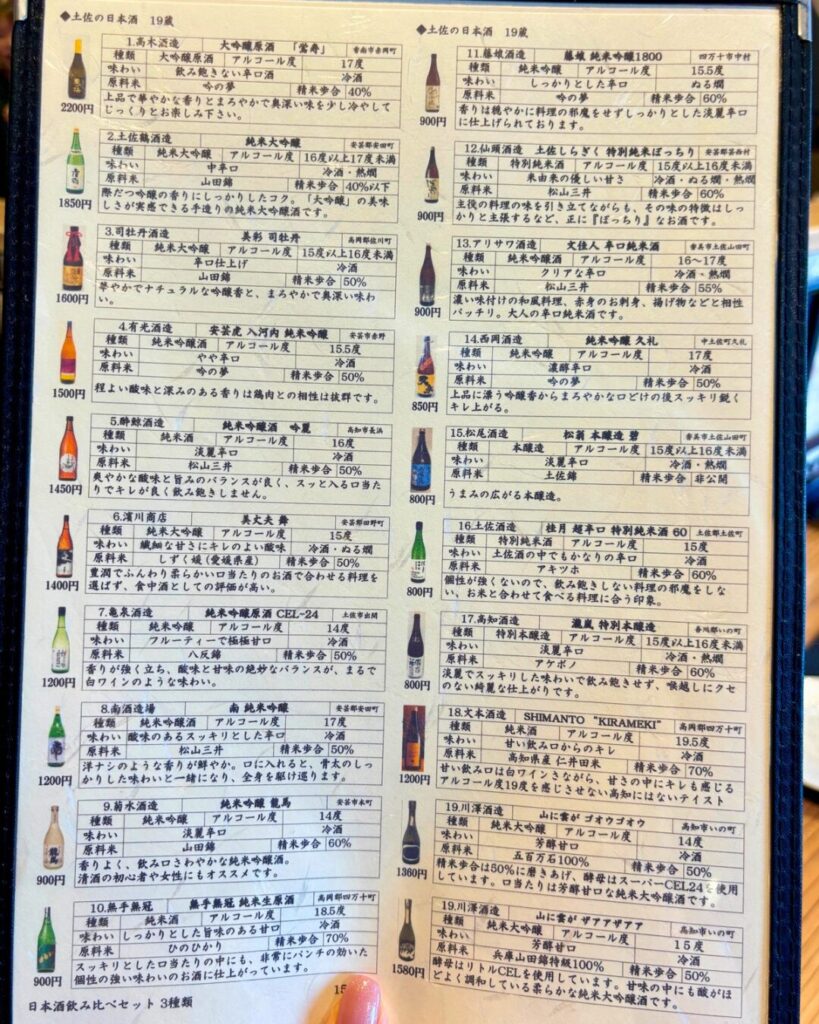 ◆土佐の日本酒 19蔵
1.高木酒造 大吟醸原酒 「鴬寿」 香南市赤岡町
種類 大吟醸原酒 アルコール度 17度
味わい 飲み飽きない辛口酒 冷酒
原料米 吟の夢 精米歩合 40%
2200円
上品で華やかな香りとまろやかで奥深い味を少し冷やして
じっくりとお楽しみ下さい。
2.土佐鶴酒造 純米大吟醸 安芸郡安田町
種類 純米大吟醸 アルコール度 16度以上17度未満
味わい 中辛口 冷酒・熱燗
原料米 山田錦 精米歩合 40%以下
1850円
際だつ吟醸の香りにしっかりしたコク。「大吟醸」の美味
しさが実感できる手造りの純米大吟醸酒です。
3.司牡丹酒造 美彩 司牡丹 高岡郡佐川町
種類 純米大吟醸 アルコール度 15度以上16度未満
味わい 辛口仕上げ 冷酒
原料米 山田錦 精米歩合 50%
1600円
華やかでナチュラルな吟醸香と、まろやかで奥深い味わ
い。
4.有光酒造 安芸虎 入河内 純米吟醸 安芸市赤野
種類 純米吟醸 アルコール度 15.5度
味わい やや辛口 冷酒
原料米 吟の夢 精米歩合 50%
1500円
程よい酸味と深みのある香りは鶏肉との相性は抜群です。
5.酔鯨酒造 純米吟醸酒 吟麗 高知市長浜
種類 純米酒 アルコール度 16度
味わい 淡麗辛口 冷酒
原料米 松山三井 精米歩合 50%
1450円
爽やかな酸味と旨みのバランスが良く、スッと入る口当た
りでキレが良く飲み飽きしません。
6.濱川商店 美丈夫 舞 安芸郡田野町
種類 純米大吟醸 アルコール度 15度
味わい 繊細な甘さにキレのよい酸味 冷酒・ぬる燗
原料米 しずく媛(愛媛県産) 精米歩合 50%
1400円
豊潤でふんわり柔らかい口当たりのお酒で合わせる料理を
選ばず、食中酒としての評価が高い。
7.亀泉酒造 純米吟醸原酒 CEL-24 土佐市出間
種類 純米吟醸 アルコール度 14度
味わい フルーティーで極極甘口 冷酒
原料米 八反錦 精米歩合 50%
1200円
香りが強く立ち、酸味と甘味の絶妙なバランスが、まるで
白ワインのような味わい。
8.南酒造場 南 純米吟醸 安芸郡安田町
種類 純米吟醸酒 アルコール度 17度
味わい 酸味のあるスッキリとした辛口 冷酒
原料米 松山三井 精米歩合 50%
1200円
洋ナシのような香りが鮮やか。口に入れると、骨太のしっ
かりした味わいと一緒になり、全身を駆け巡ります。
9.菊水酒造 純米吟醸 龍馬 安芸市本町
種類 純米吟醸 アルコール度 14度
味わい 淡麗辛口 冷酒
原料米 山田錦 精米歩合 60%
900円
香りよく、飲み口さわやかな純米吟醸酒。
清酒の初心者や女性にもオススメです。
10.無手無冠 無手無冠 純米生原酒 高岡郡四万十町
種類 純米酒 アルコール度 18.5度
味わい しっかりとした旨味のある甘口 冷酒
原料米 ひのひかり 精米歩合 70%
900円
スッキリとした口当たりの中にも、非常にパンチの効いた
個性の強い味わいのお酒に仕上がっています。
日本酒飲み比べセット 3種類 15
◆土佐の日本酒 19蔵
11.藤娘酒造 藤娘 純米吟醸1800 四万十市中村
種類 純米吟醸 アルコール度 15.5度
味わい しっかりとした辛口 ぬる燗
原料米 吟の夢 精米歩合 60%
900円
香りは穏やかに料理の邪魔をせずしっかりとした淡麗辛口
に仕上げられております。
12.仙頭酒造 土佐しらぎく 特別純米ぼっちり 安芸郡芸西村
種類 特別純米酒 アルコール度 15度以上16度未満
味わい 米由来の優しい甘さ 冷酒・ぬる燗・熱燗
原料米 松山三井 精米歩合 60%
900円
主役の料理の味を引き立てながらも、その味の特徴はしっ
かりと主張するなど、正に『ぼっちり』なお酒です。
13.アリサワ酒造 文佳人 辛口純米酒 香美市土佐山田町
種類 純米吟醸酒 アルコール度 16〜17度
味わい クリアな辛口 冷酒・熱燗
原料米 松山三井 精米歩合 55%
900円
濃い味付けの和風料理、赤身のお刺身、揚げ物などと相性
バッチリ。大人の辛口純米酒です。
14.西岡酒造 純米吟醸 久礼 中土佐町久礼
種類 純米吟醸 アルコール度 17度
味わい 濃醇辛口 冷酒
原料米 吟の夢 精米歩合 50%
850円
上品に漂う吟醸香からまろやかな口どけの後スッキリ鋭く
キレ上がる。
15.松尾酒造 松翁 本醸造 碧 香美市土佐山田町
種類 本醸造 アルコール度 15度以上16度未満
味わい 淡麗辛口 冷酒・熱燗
原料米 土佐錦 精米歩合 非公開
800円
うまみの広がる本醸造。
16.土佐酒造 桂月 超辛口 特別純米酒 60 土佐郡土佐町
種類 特別純米酒 アルコール度 15度
味わい 土佐酒の中でもかなりの辛口 冷酒
原料米 アキツホ 精米歩合 60%
800円
個性が強くないので、飲み飽きしない料理の邪魔をしな
い、お米と合わせて食べる料理に合う印象。
17.高知酒造 瀧嵐 特別本醸造 吾川郡いの町
種類 特別本醸造 アルコール度 15度以上16度未満
味わい 淡麗辛口 冷酒・熱燗
原料米 アケボノ 精米歩合 60%
800円
淡麗でスッキリした味わいで飲み飽きせず、喉越しにクセ
のない綺麗な仕上がりです。
18.文本酒造 SHIMANTO "KIRAMEKI" 高岡郡四万十町
種類 純米酒 アルコール度 19.5度
味わい 甘い飲み口からのキレ 冷酒
原料米 高知県産 仁井田米 精米歩合 70%
1200円
甘い飲み口は白ワインさながら、甘さの中にキレも感じる
アルコール度19度を感じさせない高知にはないテイスト
19.川澤酒造 山に雲が ゴオウゴオウ 高知市いの町
種類 純米大吟醸 アルコール度 14度
味わい 芳醇甘口 冷酒
原料米 五百万石100% 精米歩合 50%
1360円
精米歩合は50%に磨きあげ、酵母はスーパーCEL24を使用
しています。口当たりは芳醇甘口な純米大吟醸酒です。
19.川澤酒造 山に雲が ザアアザアア 高知市いの町
種類 純米大吟醸 アルコール度 15度
味わい 芳醇甘口 冷酒
原料米 兵庫山田錦特級100% 精米歩合 50%
1580円
酵母はリトルCELを使用しています。甘味の中にも酸がほ
どよく調和している柔らかな純米大吟醸酒です。